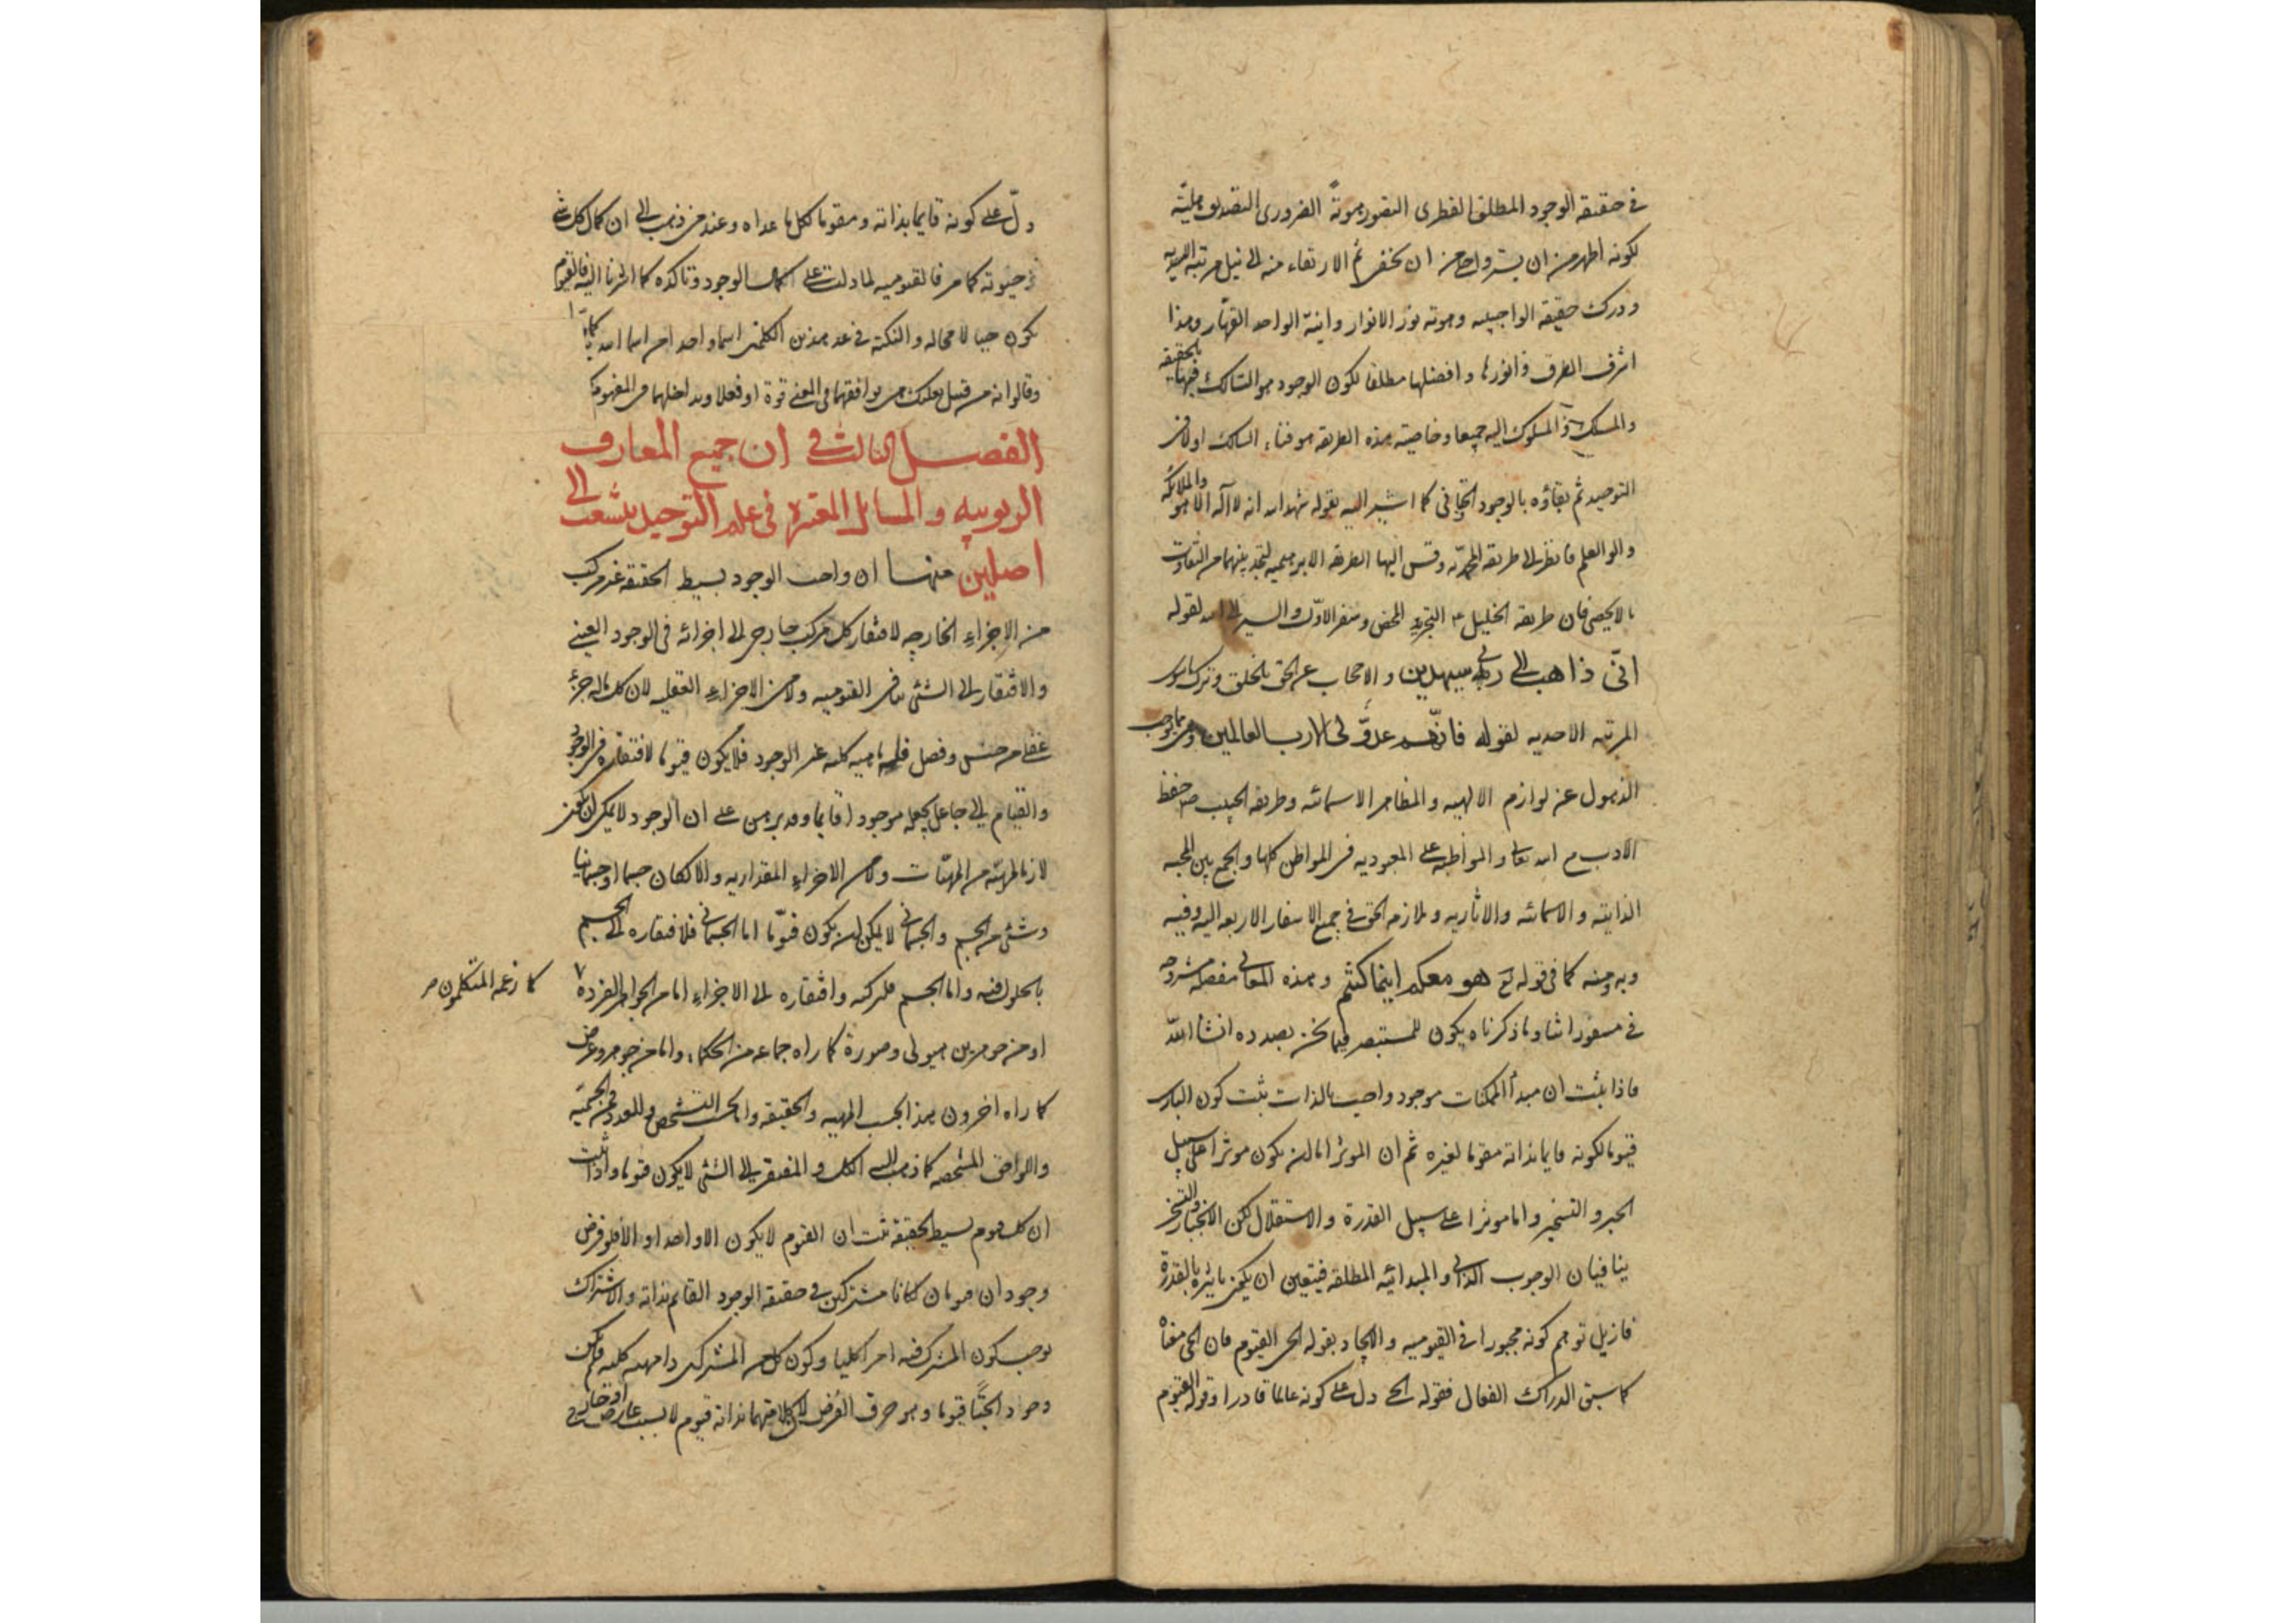 في حقيقة الوجود المطلق الفطرى التصور هويته الضرورى التصديق هليته
لكونه اظهر من ان يستر واجلى من ان يخفى ثم الارتقاء منه الى نيل مرتبة الالهيه
ودرك حقيقة الواجبيه وهوته نور الانوار وانية الواحد القهار وهذا
اشرف الطرق وانورها وافضلها مطلقا لكون الوجود هو السالك فيها بالحقيقه
والمسلك والمسلوك اليه جميعا وخاصية هذه الطريقه هو فناء السالك اولا في
التوحيد ثم بقاؤه بالوجود الحقانى كما اشير اليه بقوله شهد الله انه لا اله الا هو والملائكه
واولو العلم فانظر الى طريقة المحمديه وقس اليها الطريقه الابرهيميه لتجد بينهما من التفاوت
ما لا يحصى فان طريقة الخليل ع التجريد المحض وسفر الاول والسير الى الله لقوله
انى ذاهب الى ربى سيهدين والاحجاب عن الحق بالخلق وترك ما سوى
المرتبه الاحديه لقوله فانهم عدو لى الا رب العالمين وهى مما يوجب
الذهول عن لوازم الالهيه والمظاهر الاسمائيه وطريقة الحبيب ص حفظ
الادب مع الله تعالى والمواظبه على العبوديه فى المواطن كلها والجمع بين المحبه
الذاتيه والاسمائيه والاثاريه وملازمه الحق فى جميع الاسفار الاربعه اليه وفيه
وبه ومنه كما فى قوله تع هو معكم اينما كنتم وهذه المعانى مفصله مشروحه
فى مسفوراتنا وما ذكرناه يكون للمستبصر فيما نحن بصدده انشاء الله
فاذا ثبت ان مبدأ الممكنات موجود واجب بالذات ثبت كون البارى
قيوما لكونه قايما بذاته مقوما لغيره ثم ان الموثر اما ان يكون موثرا على سبيل
الجبر والتسخير واما موثرا على سبيل القدرة والاستقلال لكن الانجبار والتسخر
ينافيان الوجوب الذاتى والمبدائيه المطلقه فيتعين ان يكون تاثيره بالقدرة
فازيل توهم كونه مجبورا فى القيوميه والايجاد بقوله الحى القيوم فان الحى معناه
كما سبق الدراك الفعال فقوله الحى دل على كونه عالما قادرا وقوله القيوم
دل على كونه قايما بذاته ومقوما لكل ما عداه وعند من ذهب الى ان كمال كل شئ
حيوته كما مر فالقيوميه لما دلت على كمال الوجود وتاكده كما اشرنا اليه فالقيوم
يكون حيا لا محاله والنكته فى عد هذين الكلمتين اسما واحدا من اسماء الله
وقالوا انه من قبيل بعلبك هى توافقهما فى المعنى قوة او فعلا وتداخلهما فى المفهوم
الفصل الثالث فى ان جميع المعارف
الربوبيه والمسائل المعتبرة فى علم التوحيد ينشعب الى
اصلين منها ان واجب الوجود بسيط الحقيقة غير مركب
من الاجزاء الخارجيه لافتقار كل مركب خارجى الى اجزائه فى الوجود العينى
والافتقار الى الشئ ينافى القيوميه ولا من الاجزاء العقليه لان كل ما له جزء
عقلى من جنس وفصل فله ماهيه كليه غير الوجود فلا يكون قيوما لافتقاره فى الوجود
والقيام الى جاعل يجعله موجودا قايما وقد برهن على ان الوجود لا يمكن ان يكون
لازما لمهيته من المهيات ولا من الاجزاء المقداريه والا لكان جسما او جسمانيا
وشئ من الجسم والجسمانى لا يمكن ان يكون قيوما اما الجسمانى فلافتقاره الى الجسم
بالحلول فيه واما الجسم فلتركبه وافتقاره الى الاجزاء اما من الجواهر الفردة
كما زعمه المتكلمون
او من جوهرين هيولى وصورة كما راه جماعه من الحكماء واما من جوهر وعرض
كما راه اخرون هذا بحسب المهيه والحقيقه واما بحسب التشخص والعدد فمن الجسميه
واللواحق المشخصه كما ذهب اليه الكل والمفتقر الى الشئ لا يكون قيوما واذا ثبت
ان كل قيوم بسيط الحقيقة ثبت ان القيوم لا يكون الا واحدا والا فلو فرض
وجود ان قيومان لكانا مشتركين فى حقيقة الوجود القايم بذاته والاشتراك
يوجب كون المشترك فيه امرا كليا وكون كل من المشتركين ذا مهيه كليه فلم يكن
وجودا بحتا قيوما وهو خرق الفرض لان كلا منهما بذاته قيوم لا بسبب عارض